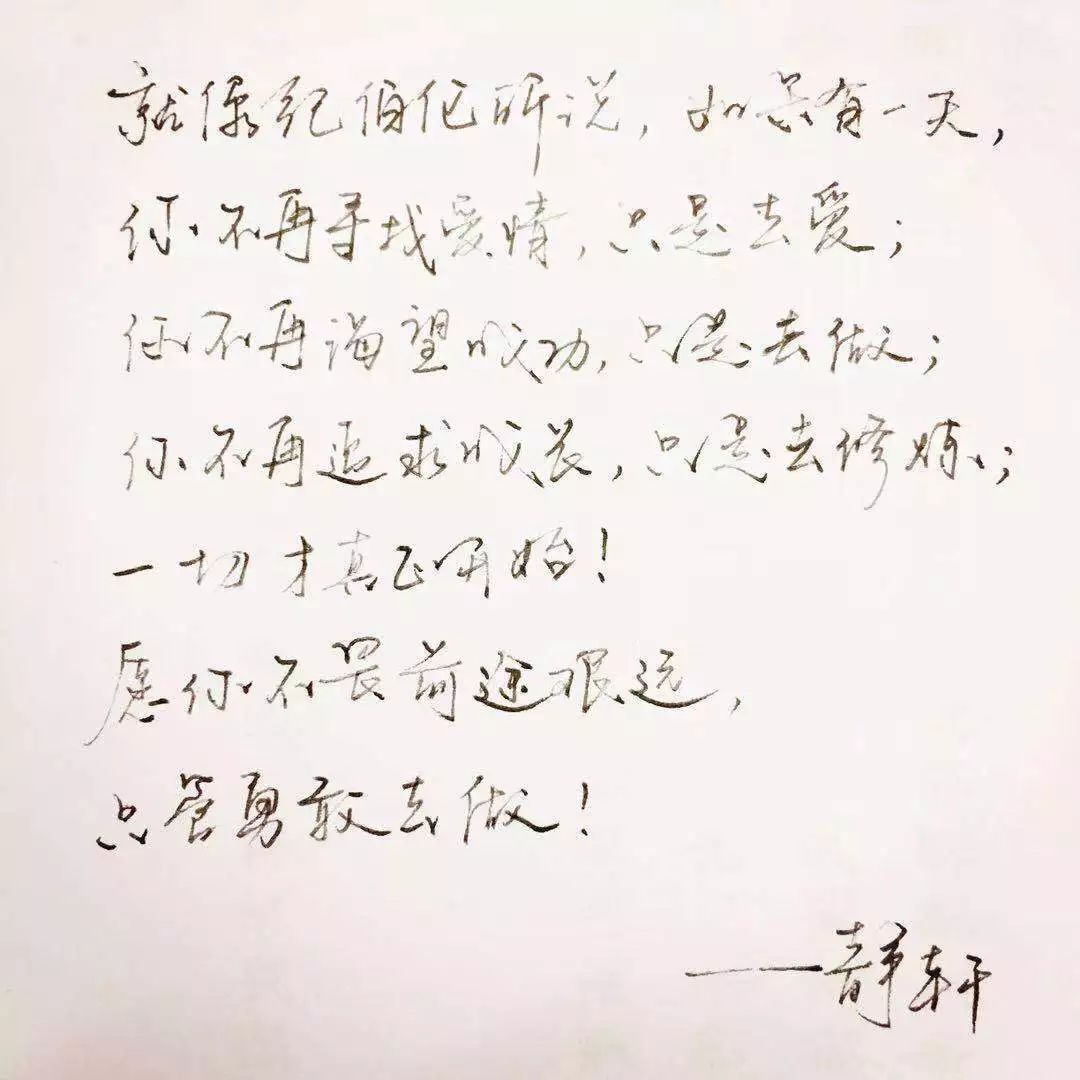 就像纪伯伦所说，如果有一天，
你不再寻找爱情，只是去爱；
你不再渴望成功，只是去做；
你不再追求成长，只是去修炼；
一切才真正开始！
愿你不畏前途艰远，
只管勇敢去做！
——静轩